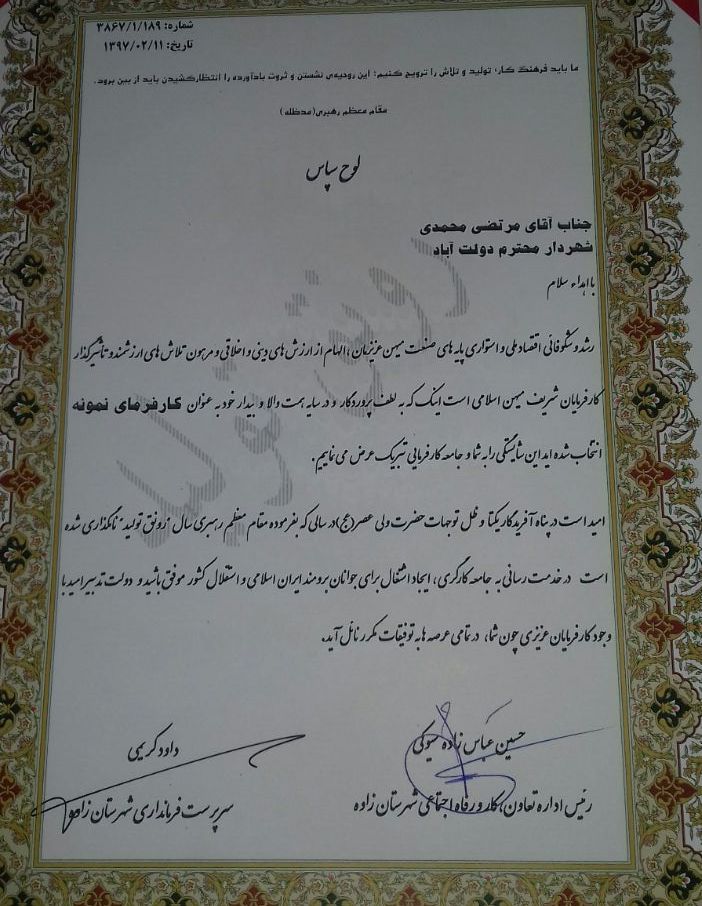 شماره: ۳۸۶۷/۱/۱۸۹
تاریخ: ۱۳۹۷/۰۲/۱۱
ما باید فرهنگ کار، تولید و تلاش را ترویج کنیم؛ این روحیه‌ی نشستن و ثروت بادآورده را انتظارکشیدن باید از بین برود.
مقام معظم رهبری(مدظله)
لوح سپاس
جناب آقای مرتضی محمدی
شهردار محترم دولت آباد
با اهداء سلام
رشد و شکوفائی اقتصاد ملی و استواری پایه های صنعت میهن عزیزمان، الهام از ارزش های دینی و اخلاقی و مرهون تلاش های ارزشمند و تاثیرگذار
کارفرمایان شریف میهن اسلامی است اینک که به لطف پروردگار و در سایه همت والا و بیدار خود به عنوان کارفرمای نمونه
انتخاب شده اید این شایستگی را به شما و جامعه کارفرمایی تبریک عرض می نماییم.
امید است در پناه آفریدگار یکتا و ظل توجهات حضرت ولی عصر(عج) در سالی که بفرموده مقام معظم رهبری سال "رونق تولید" نامگذاری شده
است در خدمت رسانی به جامعه کارگری، ایجاد اشتغال برای جوانان برومند ایران اسلامی و استقلال کشور موفق باشید و دولت تدبیر امید با
وجود کارفرمایان عزیزی چون شما، در تمامی عرصه ها به توفیقات مکرر نائل آید.
حسین عباس زاده سیوکی
رئیس اداره تعاون، کار و رفاه اجتماعی شهرستان زاوه
داود کریمی
سرپرست فرمانداری شهرستان زاوه
رونق تولید